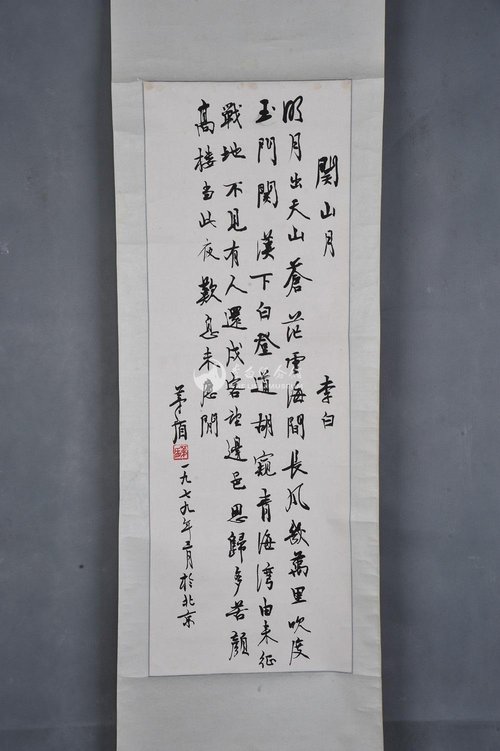 關山月 李白
明月出天山蒼茫雲海間長风幾萬里吹度
玉門關漢下白登道胡窺青海湾由来征
戰地不見有人還戍客望邊邑思歸多苦顏
高楼当此夜歎息未應閒
茅盾
一九七九年 月於北京